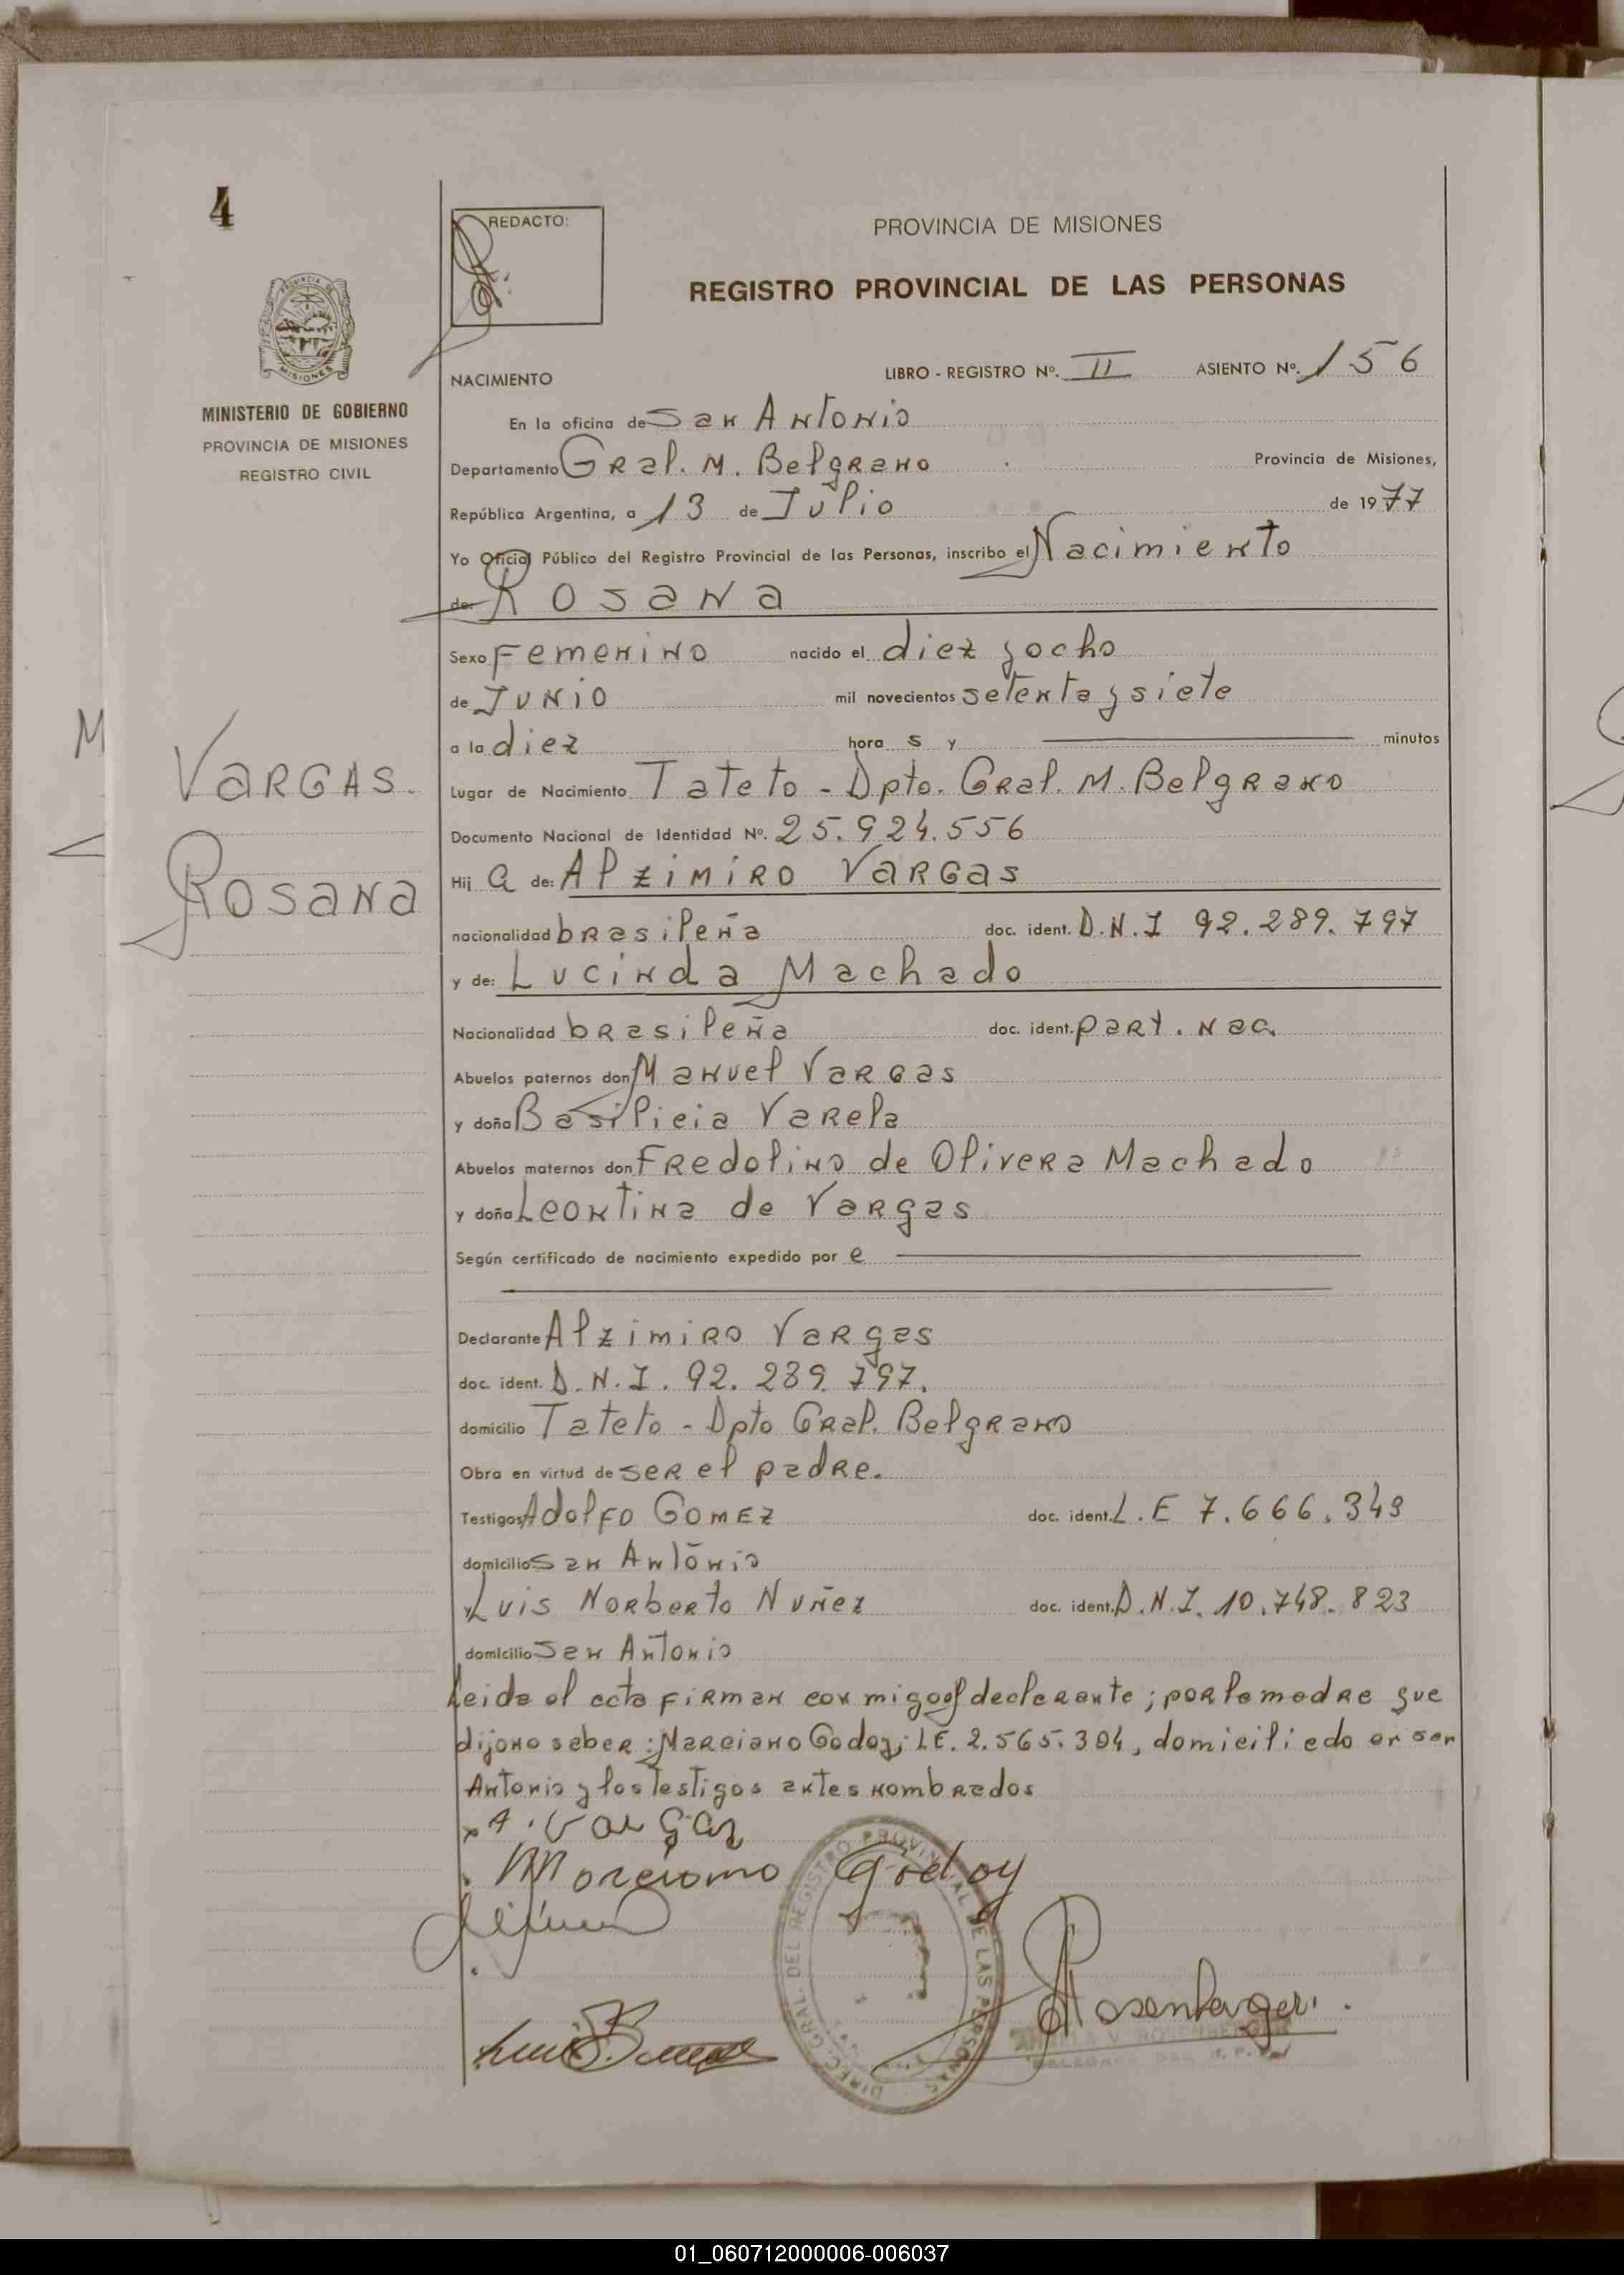 4
REDACTO:
PROVINCIA DE MISIONES
REGISTRO PROVINCIAL DE LAS PERSONAS
MISIONES
MINISTERIO DE GOBIERNO
PROVINCIA DE MISIONES
REGISTRO CIVIL
NACIMIENTO LIBRO - REGISTRO Nº. II ASIENTO Nº. 156
En la oficina de San Antonio
Departamento Gral. M. Belgrano Provincia de Misiones,
República Argentina, a 13 de Julio de 1977
Yo Oficial Público del Registro Provincial de las Personas, inscribo el Nacimiento
de: Rosana
Sexo Femenino nacido el diez y ocho
de Junio mil novecientos setenta y siete
a la diez hora s y minutos
M
Vargas.
Rosana
Lugar de Nacimiento Tateto - Dpto. Gral. M. Belgrano
Documento Nacional de Identidad Nº. 25.924.556
Hij a de: Alzimiro Vargas
nacionalidad brasileña doc. ident. D.N.I 92.289.797
y de: Lucinda Machado
Nacionalidad brasileña doc. ident. part. nac.
Abuelos paternos don Manuel Vargas
y doña Basilicia Varela
Abuelos maternos don Fredolino de Olivera Machado
y doña Leontina de Vargas
Según certificado de nacimiento expedido por e
Declarante Alzimiro Vargas
doc. ident. D.N.I. 92.289.797.
domicilio Tateto - Dpto Gral. Belgrano
Obra en virtud de ser el padre.
Testigos Adolfo Gomez doc. ident. L.E 7.666.349
domicilio San Antonio
Luis Norberto Nuñez doc. ident. D.N.I. 10.748.823
domicilio San Antonio
Leida el acta firman conmigo el declarante; por la madre que
dijo no saber: Marciano Godoy; LE. 2.565.304, domiciliado en San
Antonio y los testigos antes nombrados
A. Vargas
Marciano Godoy
DIREC. GRAL. DEL REGISTRO PROVINCIAL DE LAS PERSONAS
Rosenberger.
V. ROSENBERGER
01_060712000006-006037